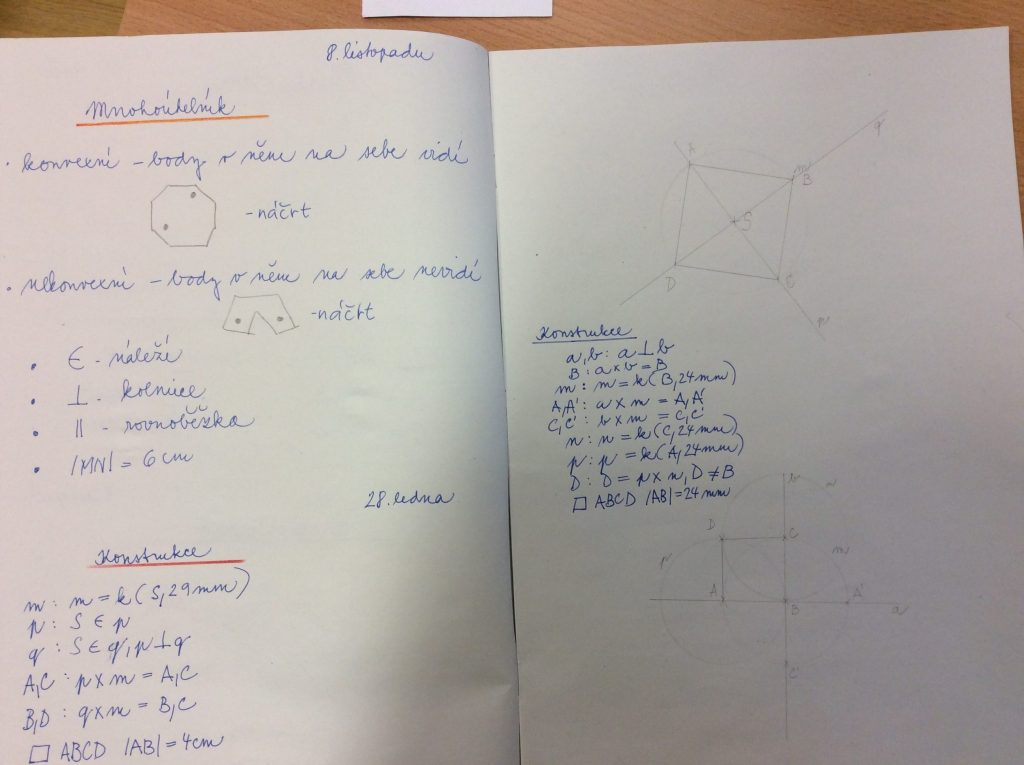 8. listopadu
Mnohoúhelník
• konvexní – body v něm na sebe vidí
- náčrt
• nekonvexní – body v něm na sebe nevidí
- náčrt
• ∈ - náleží
• ⊥ - kolmice
• || - rovnoběžka
• |MN| = 6 cm
28. ledna
Konstrukce
m: m = k (S, 29 mm)
p: S ∈ p
q: S ∈ q, p ⊥ q
A,C: p x m = A,C
B,D: q x m = B,C
□ ABCD |AB| = 4 cm
A
m
B
q
S
D
C
p
Konstrukce
a,b: a ⊥ b
B: a x b = B
m: m = k (B, 24 mm)
A,A': a x m = A,A'
C,C': b x m = C,C'
n: n = k (C, 24 mm)
p: p = k (A, 24 mm)
D: D = p x n, D ≠ B
□ ABCD |AB| = 24 mm
b
n
D
C
m
p
A
B
A'
a
C'